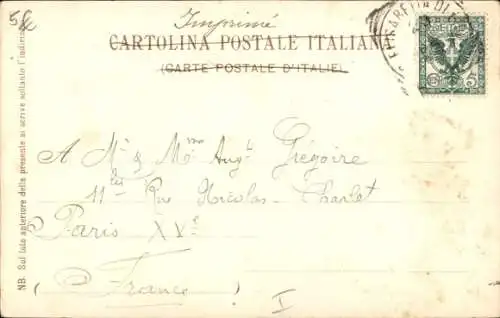 Imprimé
CARTOLINA POSTALE ITALIANA
(CARTE POSTALE D'ITALIE)
NB. Sul lato anteriore della presente si scrive soltanto l'indirizzo
5
A Mr & Mme Augte Grégoire
11 bis Rue Nicolas-Charlet
Paris XVe
(France)
I